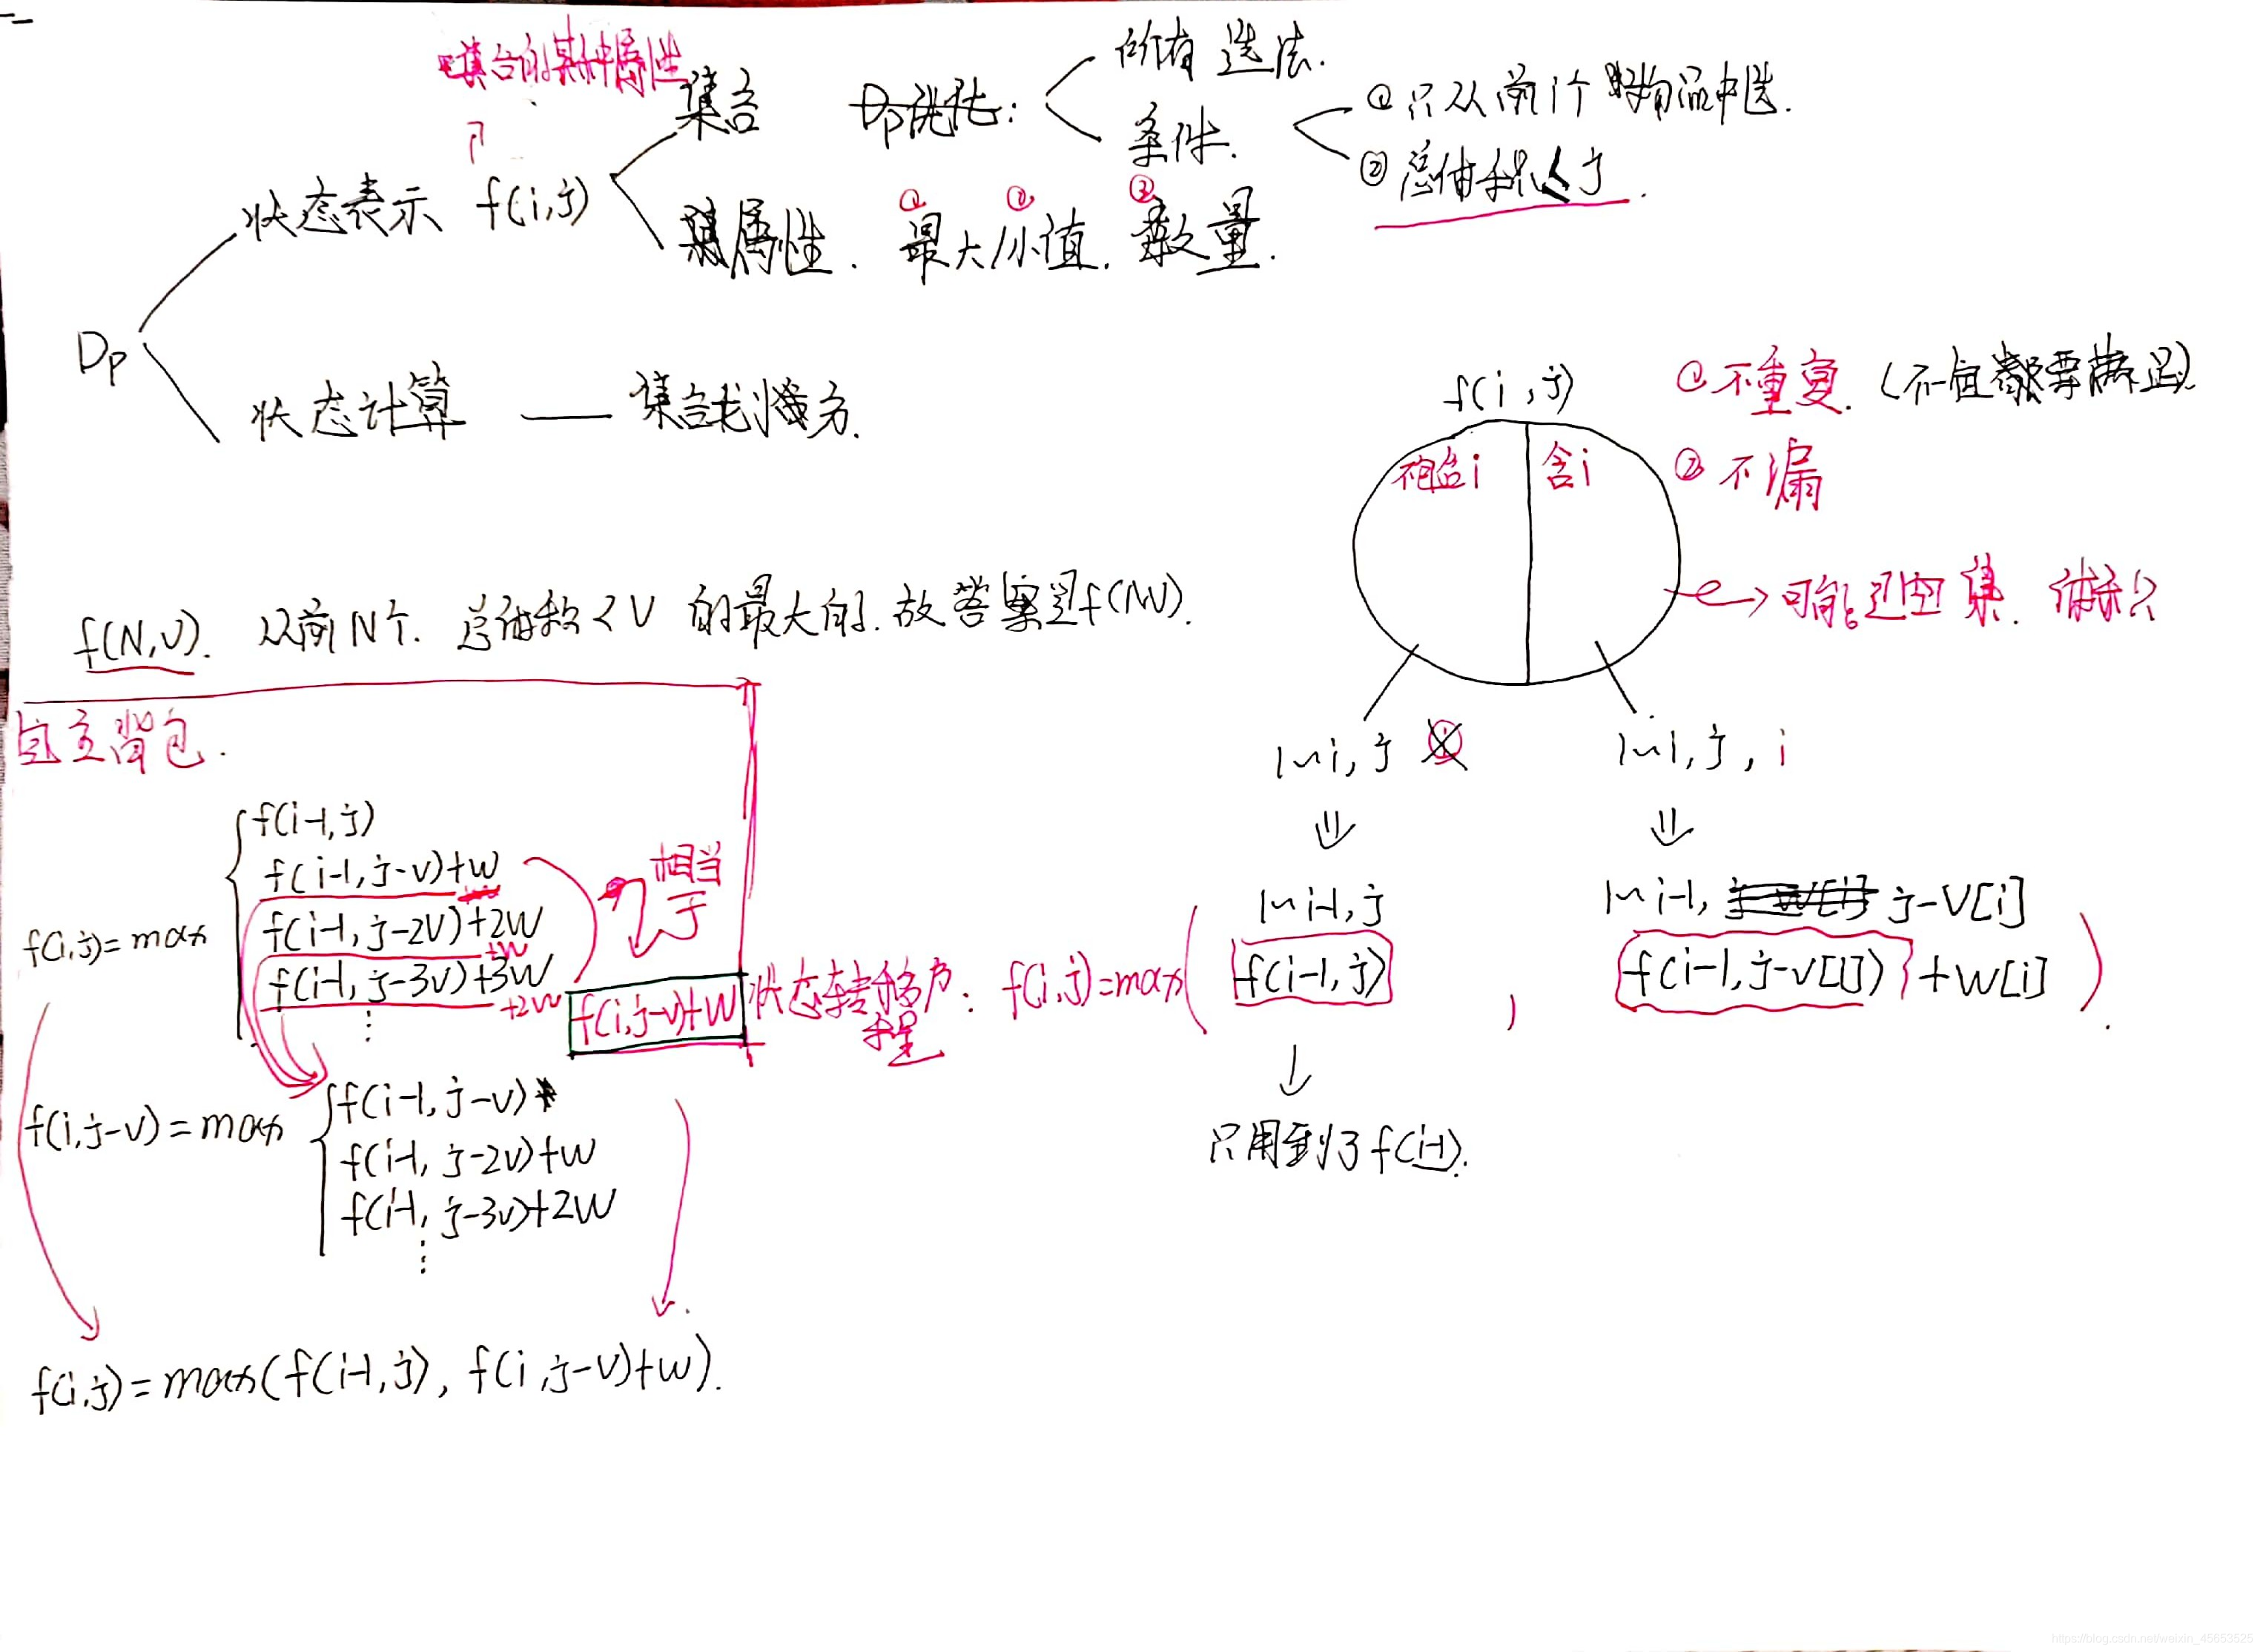 集合的某种属性
集合
所有选法.
条件.
①只从前i个物品中选.
②总体积≤j.
状态表示 f(i,j)
属性. 最大/小值. 数量.
① ② ③
Dp
状态计算 —— 集合划分.
f(i,j)
①不重复. (不一定都要满足).
②不漏
不包含i
含i
可能是空集.
f(N,V). 从前N个. 总体积<V 的最大的. 故答案是f(N,V).
背包.
1~i, j
1~i, j, i
⇓ ⇓
1~i-1, j
1~i-1, j-V[i]
f(i,j)=max
f(i-1,j)
f(i-1,j-v)+w
f(i-1,j-2v)+2w
+w
f(i-1,j-3v)+3w
+2w
⋮
相当于
f(i,j-v)+w
状态转移方程: f(i,j)=max( f(i-1,j) , f(i-1,j-v[i])+w[i] ).
只用到了f(i-1).
f(i,j-v)=max
f(i-1,j-v)
f(i-1,j-2v)+w
f(i-1,j-3v)+2w
⋮
f(i,j)=max(f(i-1,j), f(i,j-v)+w).
https://blog.csdn.net/weixin_45653525